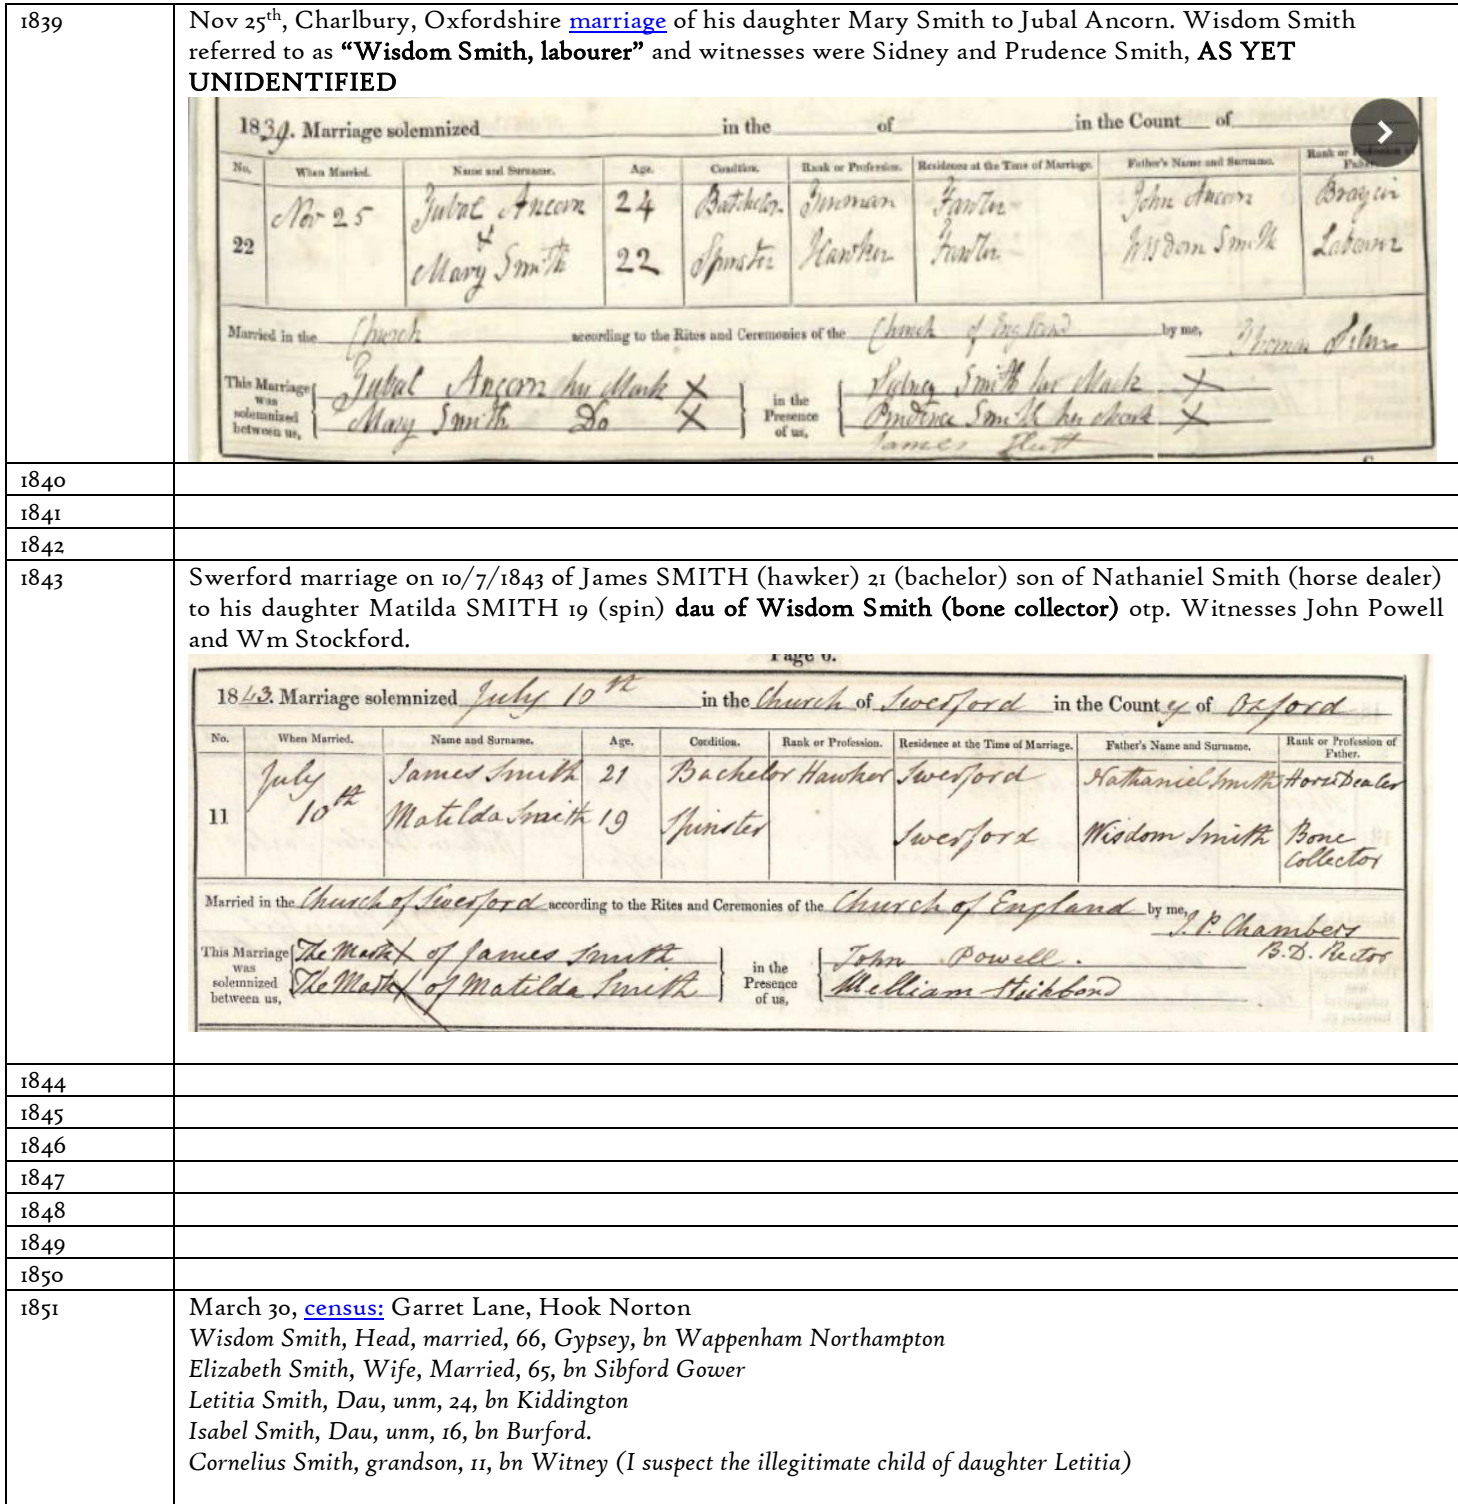 1839
Nov 25th, Charlbury, Oxfordshire marriage of his daughter Mary Smith to Jubal Ancorn. Wisdom Smith
referred to as “Wisdom Smith, labourer” and witnesses were Sidney and Prudence Smith, AS YET
UNIDENTIFIED
1839. Marriage solemnized in the of in the Count of
No. When Married. Name and Surname. Age. Condition. Rank or Profession. Residence at the Time of Marriage. Father's Name and Surname. Rank or Profession of Father.
Nov 25 Jubal Ancorn 24 Batchelor Tinman Fawler John Ancorn Brazier
22 & Mary Smith 22 Spinster Hawker Fawler Wisdom Smith Labourer
Married in the Church according to the Rites and Ceremonies of the Church of England by me, Thomas
This Marriage was solemnized between us, Jubal Ancorn his Mark X in the Presence of us, Sidney Smith his Mark X
Mary Smith Do X Prudence Smith her Mark X
James
1840
1841
1842
1843
Swerford marriage on 10/7/1843 of James SMITH (hawker) 21 (bachelor) son of Nathaniel Smith (horse dealer)
to his daughter Matilda SMITH 19 (spin) dau of Wisdom Smith (bone collector) otp. Witnesses John Powell
and Wm Stockford.
Page 6.
1843. Marriage solemnized July 10th in the Church of Swerford in the County of Oxford
No. When Married. Name and Surname. Age. Condition. Rank or Profession. Residence at the Time of Marriage. Father's Name and Surname. Rank or Profession of Father.
July James Smith 21 Bachelor Hawker Swerford Nathaniel Smith Horse Dealer
11 10th Matilda Smith 19 Spinster Swerford Wisdom Smith Bone
Collector
Married in the Church of Swerford according to the Rites and Ceremonies of the Church of England by me, J. P. Chambers
B.D. Rector
This Marriage was solemnized between us, The Mark X of James Smith in the Presence of us, John Powell.
The Mark X of Matilda Smith William
1844
1845
1846
1847
1848
1849
1850
1851
March 30, census: Garret Lane, Hook Norton
Wisdom Smith, Head, married, 66, Gypsey, bn Wappenham Northampton
Elizabeth Smith, Wife, Married, 65, bn Sibford Gower
Letitia Smith, Dau, unm, 24, bn Kiddington
Isabel Smith, Dau, unm, 16, bn Burford.
Cornelius Smith, grandson, 11, bn Witney (I suspect the illegitimate child of daughter Letitia)